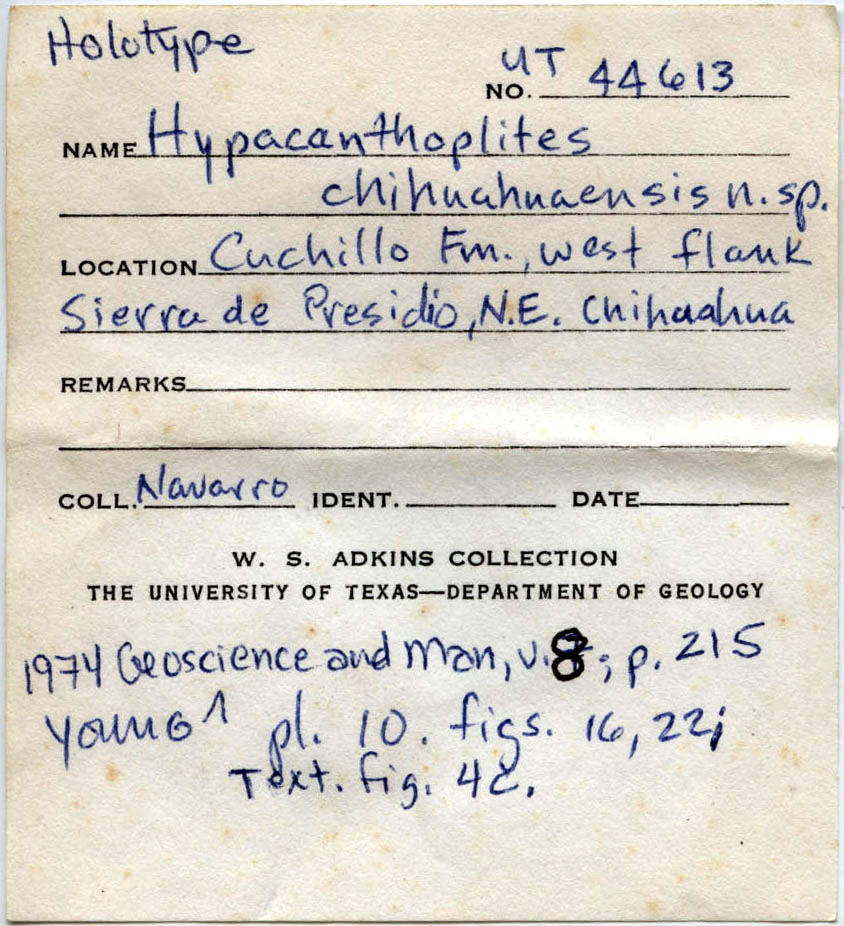 Holotype
UT
NO. 44613
NAME Hypacanthoplites
chihuahuaensis n.sp.
LOCATION Cuchillo Fm., west flank
Sierra de Presidio, N.E. Chihuahua
REMARKS
COLL. Navarro IDENT. DATE
W. S. ADKINS COLLECTION
THE UNIVERSITY OF TEXAS—DEPARTMENT OF GEOLOGY
1974 Geoscience and Man, v. 8; p. 215
Young ^ pl. 10. figs. 16, 22;
Text. fig. 4c.